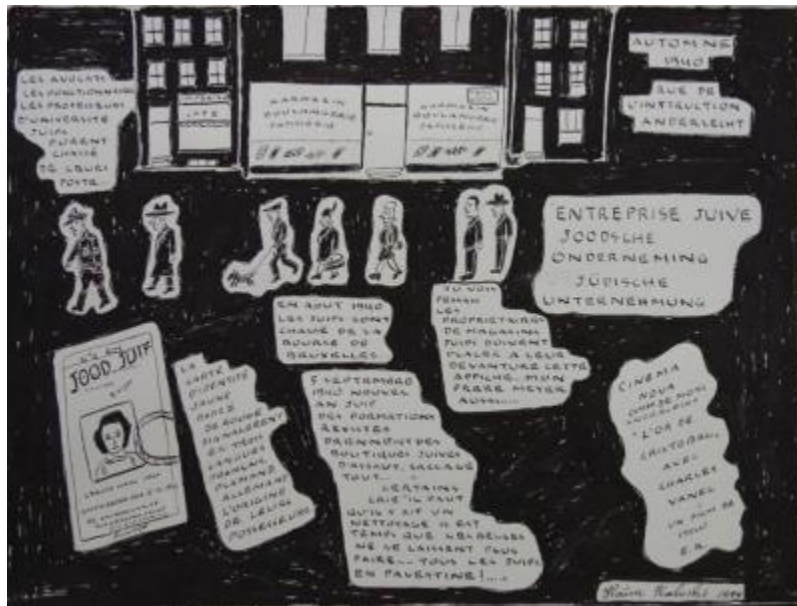 LES AVOCATS
LES FONCTIONNAIRES
LES PROFESSEURS
D'UNIVERSITÉ
JUIFS
FURENT
CHASSÉ
DE LEURS
POSTE...
CAFE
BOULANGERIE
BOULANGERIE
AUTOMNE
1940
RUE DE
L'INSTRUCTION
ANDERLECHT
ENTREPRISE JUIVE
JOODSCHE
ONDERNEMING
JÜDISCHE
UNTERNEHMUNG
EN AOUT 1940
LES JUIFS SONT
CHASSÉ DE LA
BOURSE DE
BRUXELLES
LES
PROPRIETAIRES
DE MAGASINS
JUIFS DOIVENT
PLACER A LEUR
DEVANTURE CETTE
AFFICHE. MON
FRERE MEYER
AUSSI....
JOOD JUIF
LA
CARTE
D'IDENTITÉ
JAUNE
BARRÉ
DE ROUGE
SIGNALERENT
EN TROIS
LANGUES
FRANÇAIS
FLAMAND
ALLEMAND
L'ORIGINE
DE LEURS
POSSESSEURS
5 SEPTEMBRE
1940 NOUVEL
AN JUIF
DES FORMATIONS
REXISTES
PRENNENT DES
BOUTIQUES JUIVES
D'ASSAUT, SACCAGE
TOUT...
CERTAINS
CRIE "IL FAUT
QU'IL Y AIT UN
NETTOYAGE IL EST
TEMPS QUE LES BELGES
NE SE LAISSENT PLUS
FAIRE... TOUS LES JUIFS
EN PALESTINE!....
CINEMA
NOVA
"L'OR DE
CRISTOBAL"
AVEC
CHARLES
VANEL
UN FILM DE